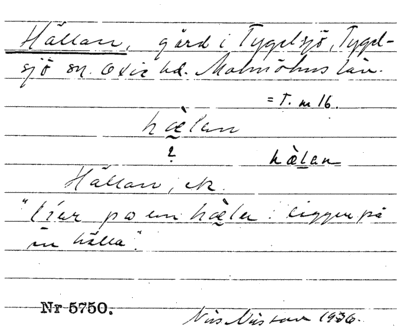 Hällan, gård i Tygelsjö, Tygel-
sjö sn. Oxie hd. Malmöhus län.
= T. m 16.
hælan
? hæ̀lan
Hällan, ek.
"liar pa en hæla : ligger på
en hälla".
Nr 5750.
Nils Nilsson 1936.